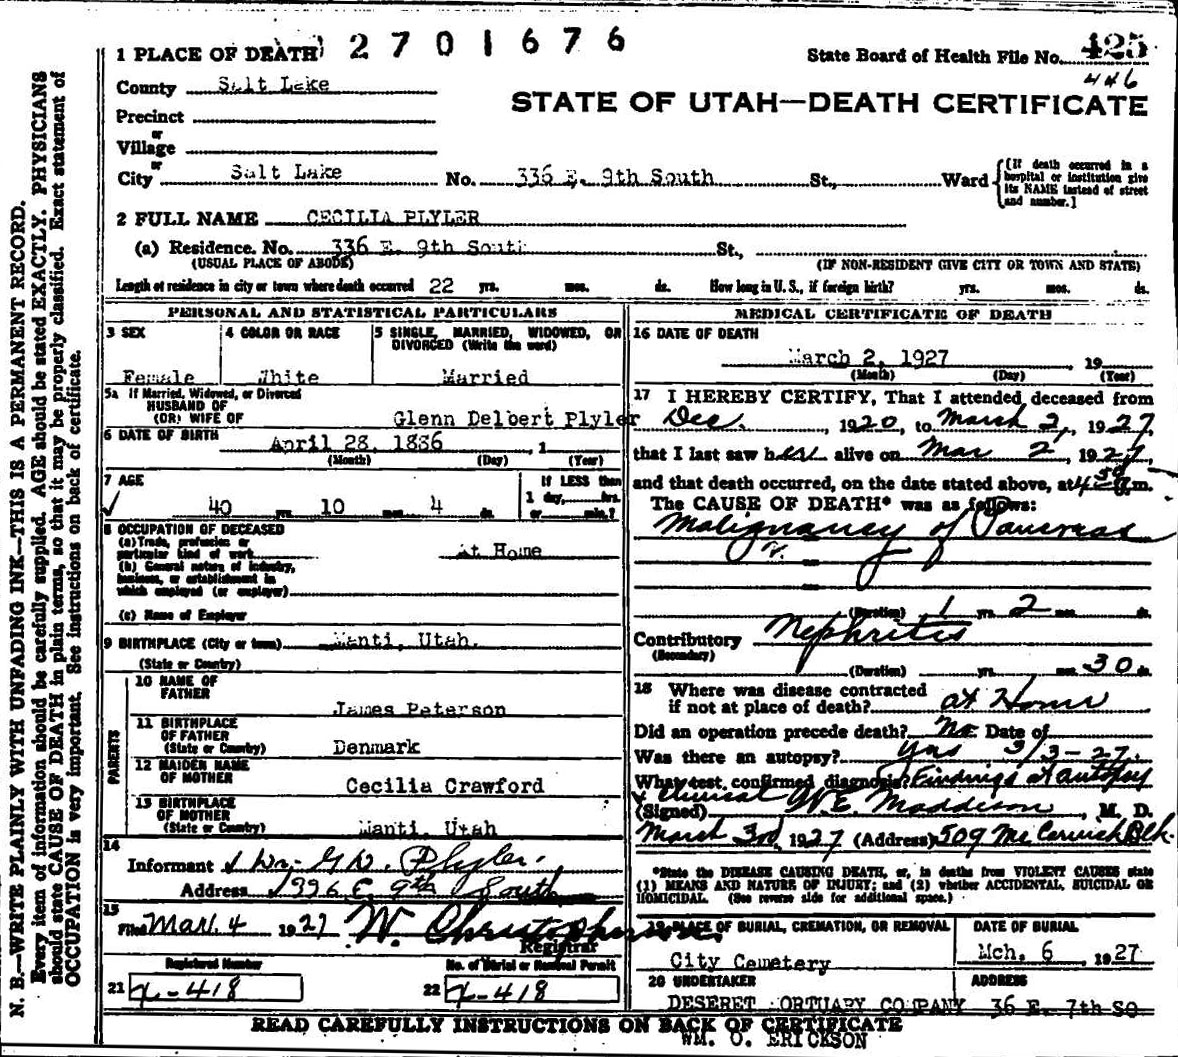 1 PLACE OF DEATH 2 7 0 1 6 7 6
State Board of Health File No. 425
446
County Salt Lake
STATE OF UTAH—DEATH CERTIFICATE
Precinct
or
Village
or
City Salt Lake No. 336 E. 9th South St., Ward {[If death occurred in a hospital or institution give its NAME instead of street and number.]
2 FULL NAME CECILIA PLYLER
(a) Residence. No. 336 E. 9th South St.,
(USUAL PLACE OF ABODE) (IF NON-RESIDENT GIVE CITY OR TOWN AND STATE)
Length of residence in city or town where death occurred 22 yrs. mos. ds. How long in U. S., if foreign birth? yrs. mos. ds.
PERSONAL AND STATISTICAL PARTICULARS
3 SEX
Female
4 COLOR OR RACE
White
5 SINGLE, MARRIED, WIDOWED, OR
DIVORCED (Write the word)
Married
5a If Married, Widowed, or Divorced
HUSBAND OF
(OR) WIFE OF Glenn Delbert Plyler
6 DATE OF BIRTH April 28, 1886, 1
(Month) (Day) (Year)
7 AGE
40 yrs. 10 mos. 4 ds.
If LESS than
1 day, hrs.
or min.?
8 OCCUPATION OF DECEASED
(a) Trade, profession or
particular kind of work At Home
(b) General nature of industry,
business, or establishment in
which employed (or employer)
(c) Name of Employer
9 BIRTHPLACE (City or town) Manti, Utah.
(State or Country)
PARENTS
10 NAME OF
FATHER James Peterson
11 BIRTHPLACE
OF FATHER
(State or Country) Denmark
12 MAIDEN NAME
OF MOTHER Cecilia Crawford
13 BIRTHPLACE
OF MOTHER
(State or Country) Manti, Utah
14
Informant Dr. G. D. Plyler.
Address 336 E 9th South
15
Filed Mar. 4 1927 W. Christopherson
Registrar
Registered Number No. of Burial or Removal Permit
21 X-418 22 X-418
MEDICAL CERTIFICATE OF DEATH
16 DATE OF DEATH
March 2, 1927 19
(Month) (Day) (Year)
17 I HEREBY CERTIFY, That I attended deceased from
Dec. , 1920, to March 2, 1927,
that I last saw her alive on Mar 2, 1927,
and that death occurred, on the date stated above, at 4 m.
The CAUSE OF DEATH* was as follows:
Malignancy of Pancreas
(Duration) 1 yrs. 2 mos. ds.
Contributory Nephritis
(Secondary)
(Duration) yrs. mos. 30 ds.
18 Where was disease contracted
if not at place of death? at Home
Did an operation precede death? No Date of
Was there an autopsy? yes 3/3-27.
What test confirmed diagnosis? Findings at autopsy
Clinical
(Signed) W. E. Maddison, M. D.
March 3rd, 1927 (Address) 509 McCornick Blk.
*State the DISEASE CAUSING DEATH, or, in deaths from VIOLENT CAUSES state
(1) MEANS AND NATURE OF INJURY; and (2) whether ACCIDENTAL, SUICIDAL OR
HOMICIDAL. (See reverse side for additional space.)
19 PLACE OF BURIAL, CREMATION, OR REMOVAL
City Cemetery
DATE OF BURIAL
Mch. 6 1927
20 UNDERTAKER ADDRESS
DESERET MORTUARY COMPANY 36 E. 7th SO
READ CAREFULLY INSTRUCTIONS ON BACK OF CERTIFICATE
WM. O. ERICKSON
N. B.—WRITE PLAINLY WITH UNFADING INK—THIS IS A PERMANENT RECORD.
Every item of information should be carefully supplied. AGE should be stated EXACTLY. PHYSICIANS
should state CAUSE OF DEATH in plain terms, so that it may be properly classified. Exact statement of
OCCUPATION is very important. See instructions on back of certificate.